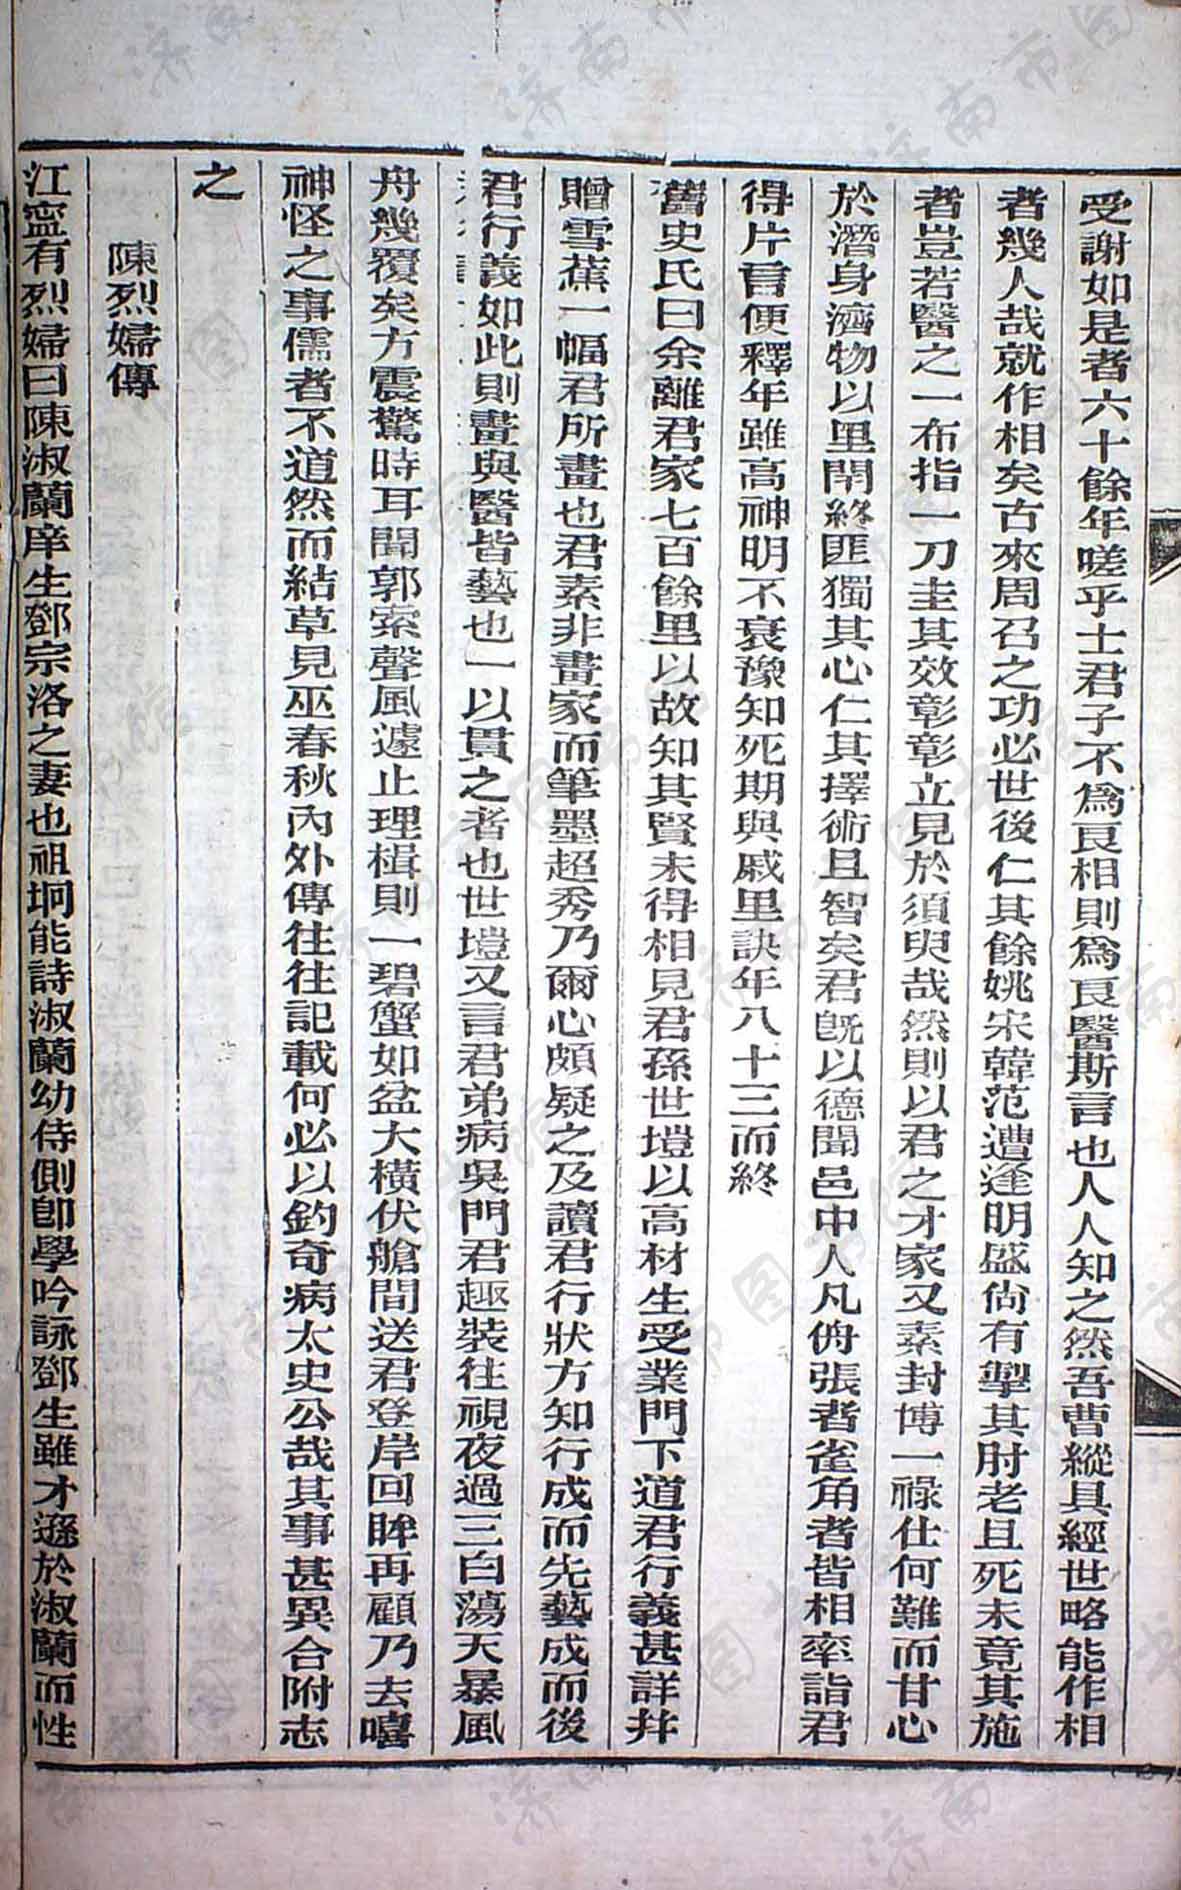 受謝如是者六十餘年嗟乎士君子不爲良相則爲良醫斯言也人人知之然吾曹縱具經世略能作相
者幾人哉就作相矣古來周召之功必世後仁其餘姚宋韓范遭逢明盛尙有掣其肘老且死未竟其施
者豈若醫之一布指一刀圭其效彰彰立見於須臾哉然則以君之才家又素封博一祿仕何難而甘心
於潛身濟物以里閈終匪獨其心仁其擇術且智矣君旣以德聞邑中人凡侜張者雀角者皆相率詣君
得片言便釋年雖高神明不衰豫知死期與戚里訣年八十三而終
舊史氏曰余離君家七百餘里以故知其賢未得相見君孫世塏以高材生受業門下道君行義甚詳幷
贈雪蕉一幅君所畫也君素非畫家而筆墨超秀乃爾心頗疑之及讀君行狀方知行成而先藝成而後
君行義如此則畫與醫皆藝也一以貫之者也世塏又言君弟病吳門君趣裝往視夜過三白蕩天暴風
舟幾覆矣方震驚時耳聞郭索聲風遽止理楫則一碧蟹如盆大橫伏艙間送君登岸回眸再顧乃去嘻
神怪之事儒者不道然而結草見巫春秋內外傳往往記載何必以釣奇病太史公哉其事甚異合附志
之
陳烈婦傳
江寧有烈婦曰陳淑蘭庠生鄧宗洛之妻也祖坰能詩淑蘭幼侍側卽學吟詠鄧生雖才遜於淑蘭而性
济南市图书馆